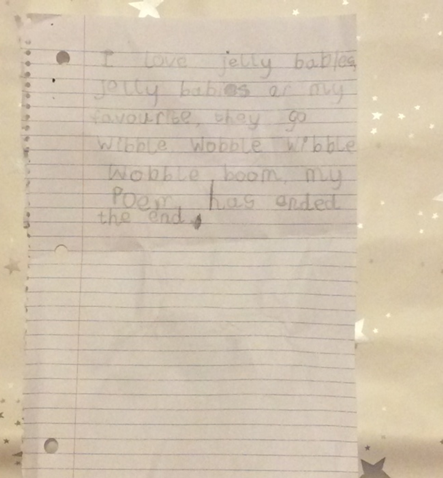 I love jelly babies
jelly babies ar my
favourite, they go
wibble wobble wibble
wobble boom, my
Poem has ended
the end.